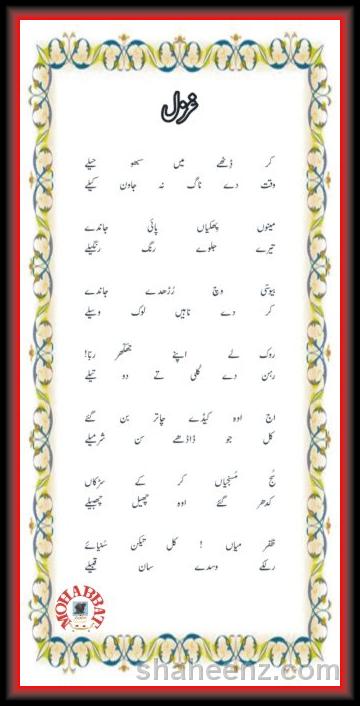 غزل
کر ڈِٹھے میں سبھو حیلے
وقت دے ناگ نہ جاون کیلے
مینوں پھکیاں پائی جاندے
تیرے جلوے رنگ رنگیلے
بیوسی وچ رُڑھدے جاندے
کر دے ناہیں لوک وسیلے
روک لے اپنے جھکھڑ ربّا!
رہن دے گلی تے دو تیلے
اج اوہ کیڈے چاتر بن گئے
کل جو ڈاڈھے سن شرمیلے
سُنج مسنجیاں کر کے سڑکاں
کدھر گئے اوہ چھیل چھبیلے
ظفر میاں ! کل تیکن سُنیائے
رلکے وسدے سان قبیلے
MOHABBAT
shaheenz.com